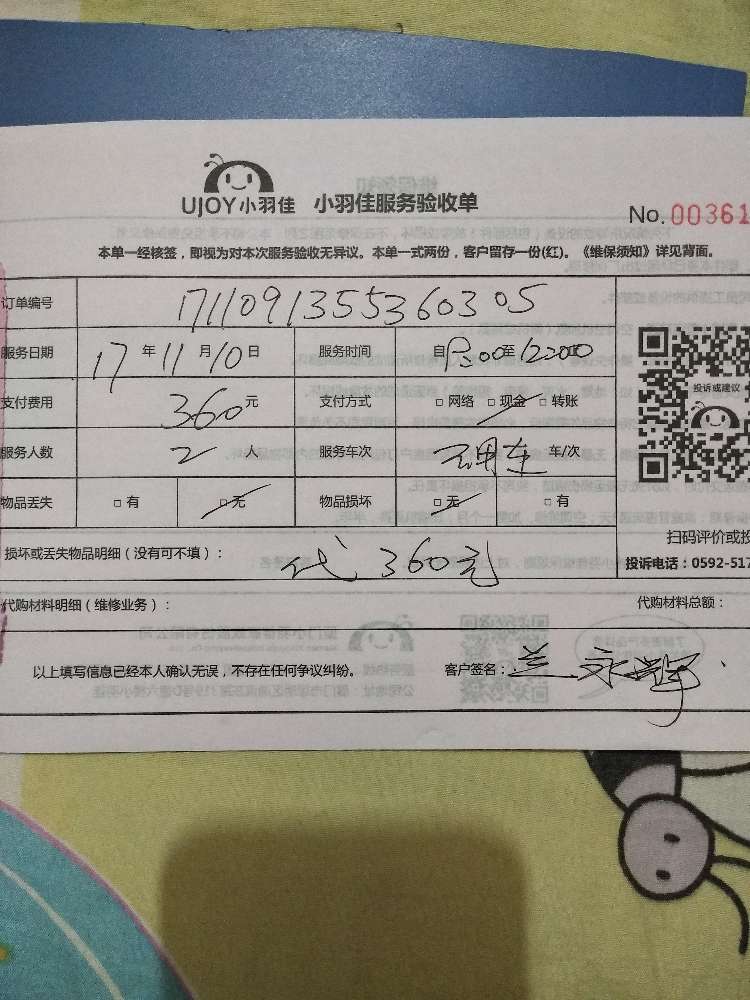 UJOY小羽佳 小羽佳服务验收单
No.00361
本单一经核签，即视为对本次服务验收无异议。本单一式两份，客户留存一份(红)。《维保须知》详见背面。
订单编号 17110913553603 05
服务日期 17年11月10日 服务时间 自 :00至12:00
支付费用 360元 支付方式 □网络 □现金 □转账
服务人数 2人 服务车次 车/次
物品丢失 □有 □无 物品损坏 □无 □有
投诉或建议
扫码评价或投
损坏或丢失物品明细（没有可不填）： 代 360元
投诉电话：0592-517
代购材料明细（维修业务）： 代购材料总额：
以上填写信息已经本人确认无误，不存在任何争议纠纷。 客户签名：兰永辉